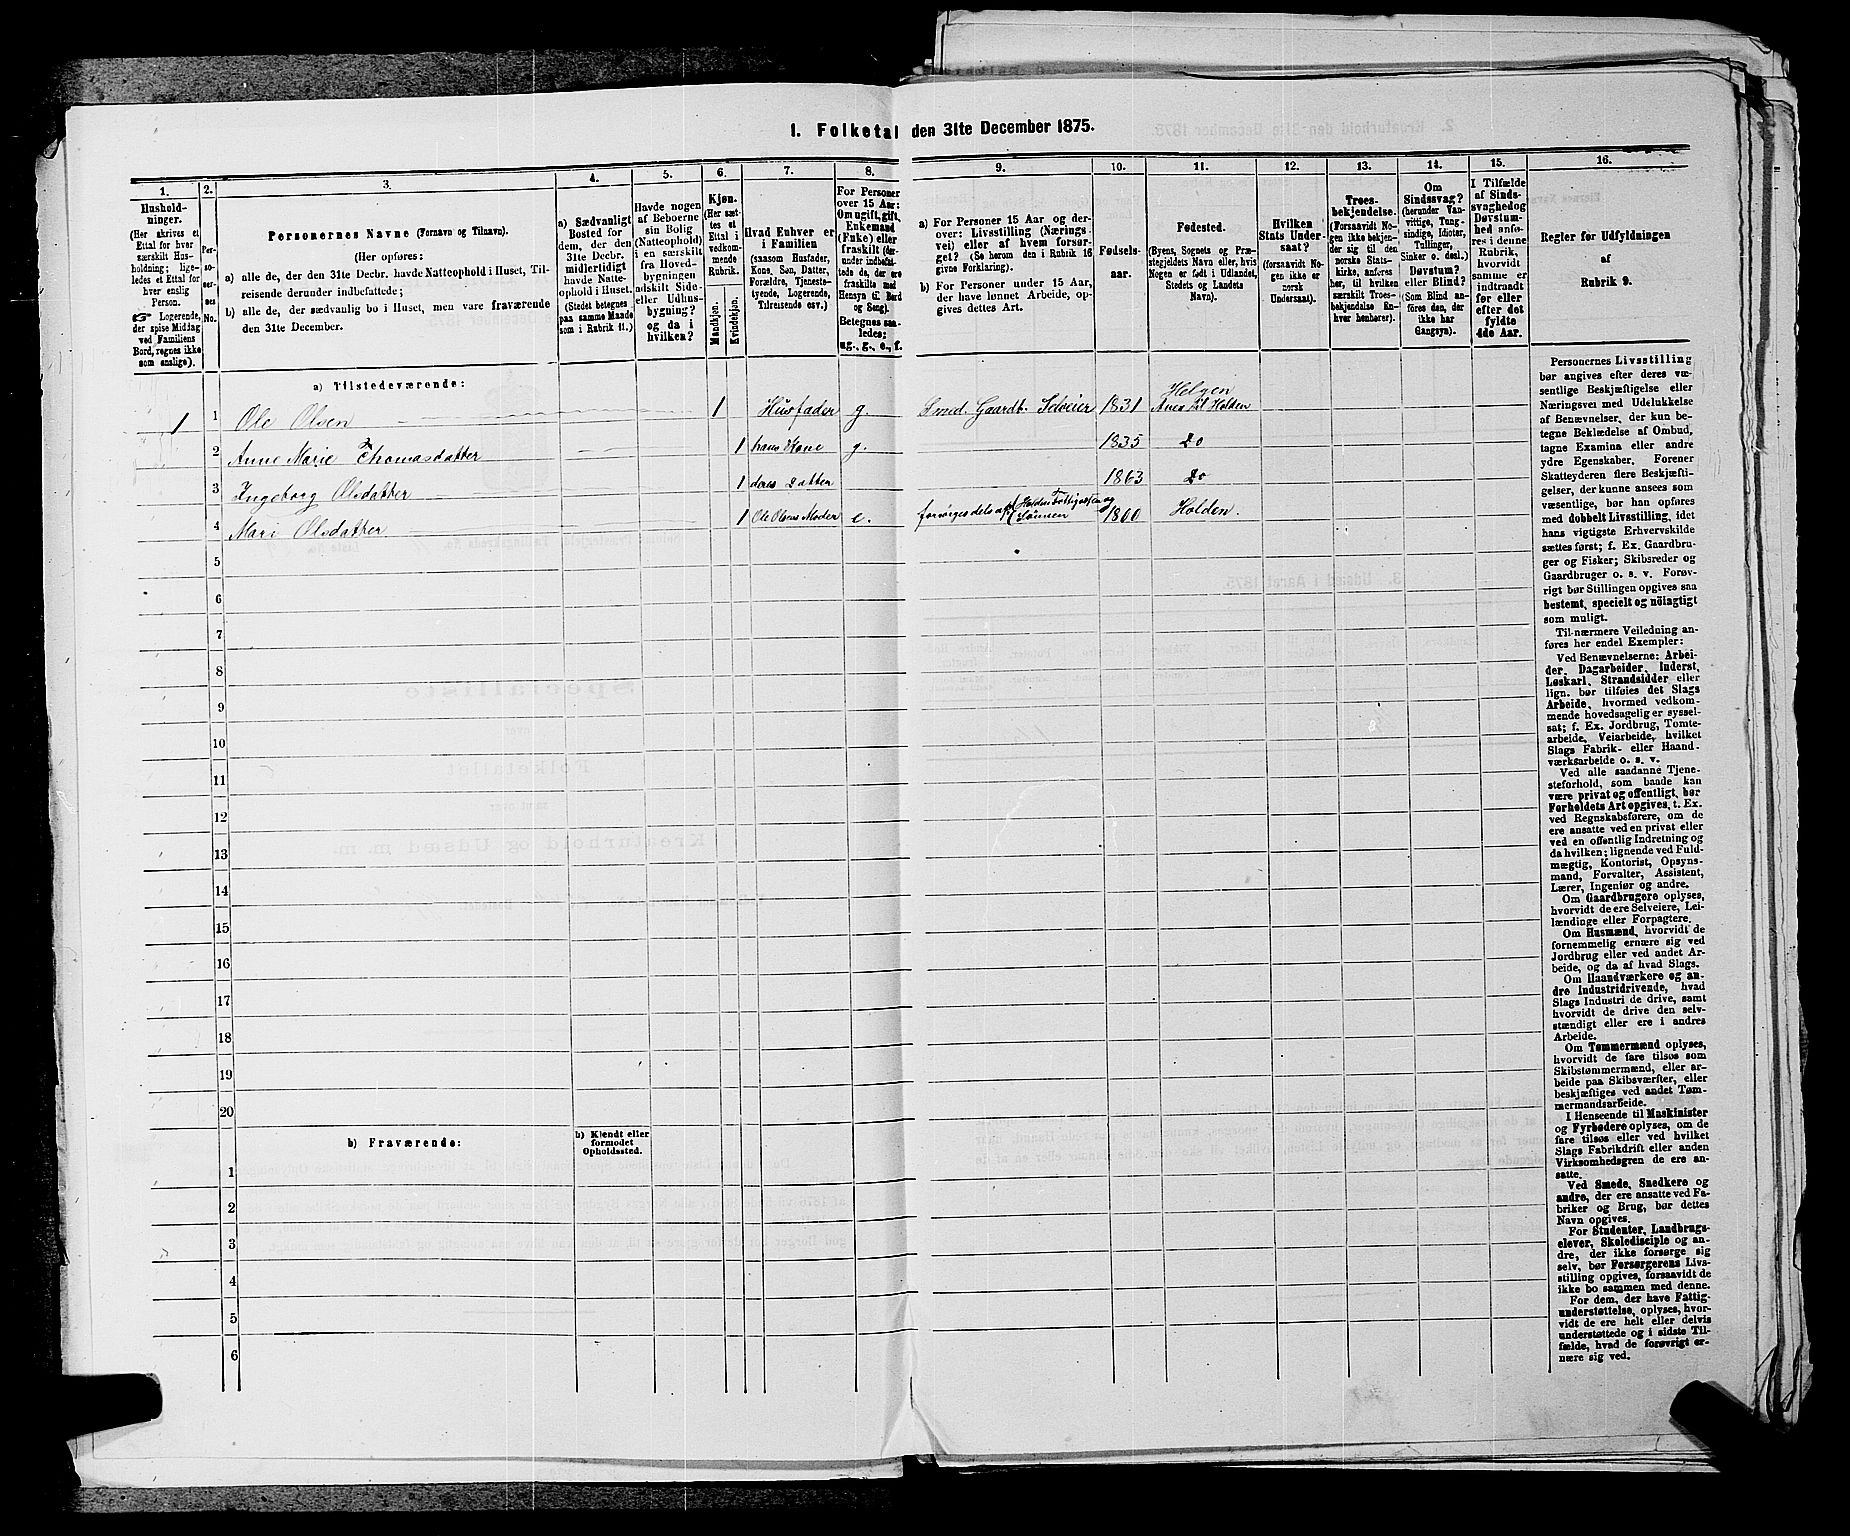 1. Folketal den 31te December 1875.
1.
2.
3.
4.
5.
6.
7.
8.
9.
10.
11.
12.
13.
14.
15.
16.
Hushold-
ninger.
(Her skrives et
Ettal for hver
særskilt Hus-
holdning; lige-
ledes et Ettal for
hver enslig
Person.
☞ Logerende,
der spise Middag
ved Familiens
Bord, regnes ikke
som enslige).
Per-
so-
ner-
nes
No.
Personernes Navne (Fornavn og Tilnavn).
(Her opføres:
a) alle de, der den 31te Decbr. havde Natteophold i Huset, Til-
reisende derunder indbefattede;
b) alle de, der sædvanlig bo i Huset, men vare fraværende
den 31te December.
a) Sædvanligt
Bosted for
dem, der den
31te Decbr.
midlertidigt
havde Natte-
ophold i Huset.
(Stedet betegnes
paa samme Maade
som i Rubrik 11.)
Havde nogen
af Beboerne
sin Bolig
(Natteophold)
i en særskilt
fra Hoved-
bygningen
adskilt Side-
eller Udhus-
bygning?
og da i
hvilken?
Kjøn.
(Her sæt-
tes et
Ettal i
vedkom-
mende
Rubrik.
Mandkjøn.
Kvindekjøn.
Hvad Enhver er
i Familien
(saasom Husfader,
Kone, Søn, Datter,
Forældre, Tjeneste-
tyende, Logerende,
Tilreisende osv.)
For Personer
over 15 Aar:
Om ugift, gift,
Enkemand
(Enke) eller
fraskilt (der-
under indbefat-
tede de, der ere
fraskilte med
Hensyn til Bord
og Seng).
Betegnes saa-
ledes:
ug., g., e., f.
a) For Personer 15 Aar og der-
over: Livsstilling (Nærings-
vei) eller af hvem forsør-
get? (Se herom den i Rubrik 16
givne Forklaring).
b) For Personer under 15 Aar,
der have lønnet Arbeide, op-
gives dettes Art.
Fødsels-
aar.
Fødested.
(Byens, Sognets og Præ-
stegjeldets Navn eller, hvis
Nogen er født i Udlandet,
Stedets og Landets
Navn).
Hvilken
Stats Under-
saat?
(forsaavidt No-
gen ikke er
norsk
Undersaat).
Troes-
bekjendelse.
(Forsaavidt No-
gen ikke bekjen-
der sig til den
norske Stats-
kirke, anføres
her, til hvilken
særskilt Troes-
bekjendelse En-
hver henhører).
Om
Sindssvag?
(herunder Van-
vittige, Tung-
sindige, Idioter,
Tullinger,
Sinker o. desl.)
Døvstum?
eller Blind?
(Som Blind an-
føres den, der
ikke har
Gangsyn).
I Tilfælde
af Sinds-
svaghed og
Døvstum-
hed anfø-
res i denne
Rubrik,
hvorvidt
samme er
indtraadt
før eller
efter det
fyldte
4de Aar.
Regler for Udfyldningen
af
Rubrik 9.
a) Tilstedeværende:
1 1 Ole Olsen 1 Husfader g. Smed. Gaardb. Selveier 1831 Helgen Annex til Holden
2 Anne Marie Thomasdatter 1 hans Kone g. 1835 Do
3 Ingeborg Olsdatter 1 deres Datter 1863 Do
4 Mari Olsdatter 1 Ole Olsens Moder e. forsørges dels af Holdens Fattigvæsen og Sønnen 1800 Holden.
5
6
7
8
9
10
11
12
13
14
15
16
17
18
19
20
b) Fraværende:
b) Kjendt eller
formodet
Opholdssted.
1
2
3
4
5
6
Personernes Livsstilling
bør angives efter deres væ-
sentlige Beskjæftigelse eller
Næringsvei med Udelukkelse
af Benævnelser, der kun be-
tegne Beklædelse af Ombud,
tagne Examina eller andre
ydre Egenskaber. Forener
Skatteyderen flere Beskjæfti-
gelser, der kunne ansees som
væsentlige, bør han opføres
med dobbelt Livsstilling, idet
hans vigtigste Erhvervskilde
sættes først; f. Ex. Gaardbru-
ger og Fisker; Skibsreder og
Gaardbruger o. s. v. Forøv-
rigt bør Stillingen opgives saa
bestemt, specielt og nøiagtigt
som muligt.
Til nærmere Veiledning an-
føres her endel Exempler:
Ved Benævnelserne: Arbei-
der, Dagarbeider, Inderst,
Løskarl, Strandsidder eller
lign. bør tilføies det Slags
Arbeide, hvormed vedkom-
mende hovedsagelig er syssel-
sat; f. Ex. Jordbrug, Tomte-
arbeide, Veiarbeide, hvilket
Slags Fabrik- eller Haand-
værksarbeide o. s. v.
Ved alle saadanne Tjene-
steforhold, som baade kan
være privat og offentligt, bør
Forholdets Art opgives, t. Ex.
ved Regnskabsførere, om de
ere ansatte ved en privat eller
ved en offentlig Indretning og
da hvilken; lignende ved Fuld-
mægtig, Kontorist, Opsyns-
mand, Forvalter, Assistent,
Lærer, Ingeniør og andre.
Om Gaardbrugere oplyses,
hvorvidt de ere Selveiere, Lei-
lændinge eller Forpagtere.
Om Husmænd, hvorvidt de
fornemmelig ernære sig ved
Jordbrug eller ved andet Ar-
beide, og da af hvad Slags.
Om Haandværkere og an-
dre Industridrivende, hvad
Slags Industri de drive, samt
hvorvidt de drive den selv-
stændigt eller ere i andres
Arbeide.
Om Tømmermænd oplyses,
hvorvidt de fare tilsøs som
Skibstømmermænd, eller ar-
beide paa Skibsværfter, eller
beskjæftiges ved andet Tøm-
mermandsarbeide.
I Henseende til Maskinister
og Fyrbødere oplyses, om de
fare tilsøs eller ved hvilket
Slags Fabrikdrift eller anden
Virksomhedsgren de ere an-
satte.
Ved Smede, Snedkere og
andre, der ere ansatte ved Fa-
briker og Brug, bør dettes
Navn opgives.
For Studenter, Landbrugs-
elever, Skoledisciple og an-
dre, der ikke forsørge sig
selv, bør Forsørgerens Livs-
stilling opgives, forsaavidt de
ikke bo sammen med denne.
For dem, der have Fattig-
understøttelse, oplyses, hvor-
vidt de ere helt eller delvis
understøttede og i sidste Til-
fælde, hvad de forøvrigt er-
nære sig ved.